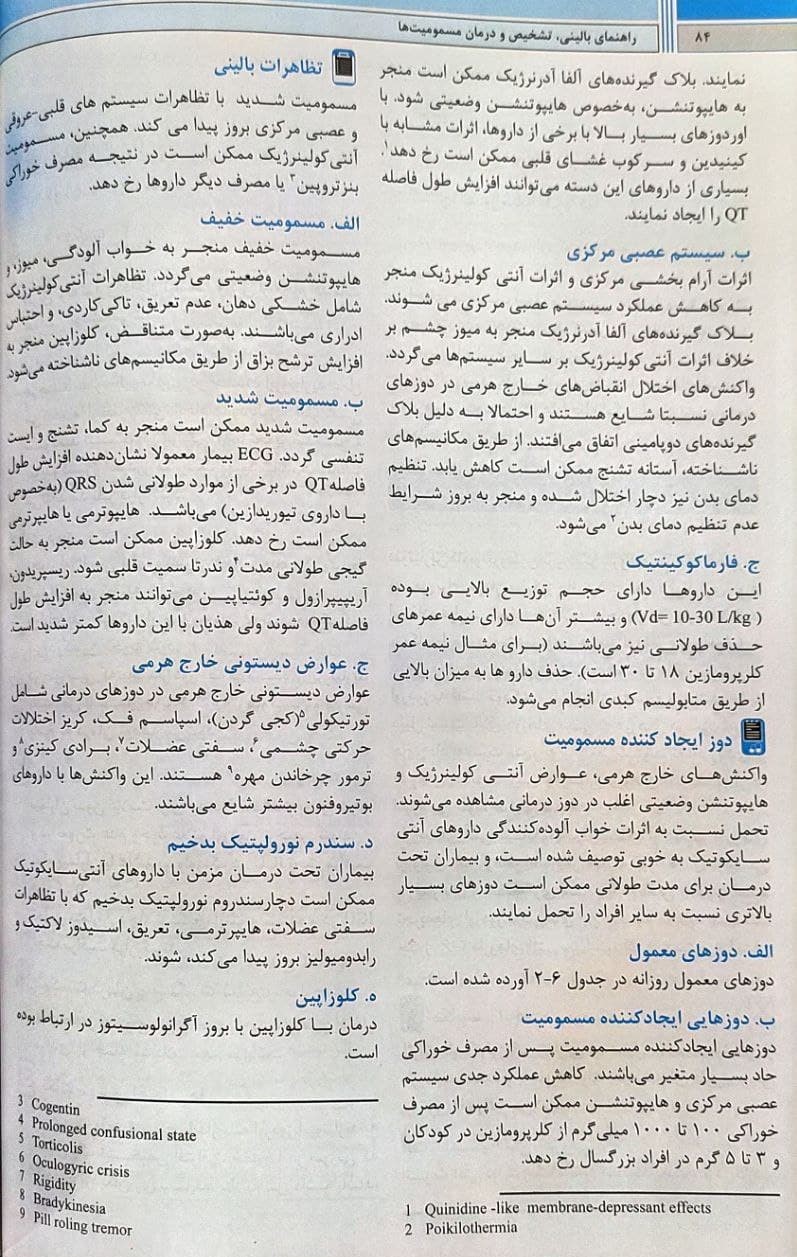 ۸۴
راهنمای بالینی، تشخیص و درمان مسمومیت‌ها
نمایند. بلاک گیرنده‌های آلفا آدرنرژیک ممکن است منجر
به هایپوتنشن، به‌خصوص هایپوتنشن وضعیتی شود. با
اوردوزهای بسیار بالا با برخی از داروها، اثرات مشابه با
کینیدین و سرکوب غشای قلبی ممکن است رخ دهد۱.
بسیاری از داروهای این دسته می‌توانند افزایش طول فاصله
QT را ایجاد نمایند.
ب. سیستم عصبی مرکزی
اثرات آرام بخشی مرکزی و اثرات آنتی کولینرژیک منجر
به کاهش عملکرد سیستم عصبی مرکزی می شوند.
بلاک گیرنده‌های آلفا آدرنرژیک منجر به میوز چشم بر
خلاف اثرات آنتی‌کولینرژیک بر سایر سیستم‌ها می‌گردد.
واکنش‌های اختلال انقباض‌های خارج هرمی در دوزهای
درمانی نسبتا شایع هستند و احتمالا به دلیل بلاک
گیرنده‌های دوپامینی اتفاق می‌افتند. از طریق مکانیسم‌های
ناشناخته، آستانه تشنج ممکن است کاهش یابد. تنظیم
دمای بدن نیز دچار اختلال شده و منجر به بروز شرایط
عدم تنظیم دمای بدن۲ می‌شود.
ج. فارماکوکینتیک
این داروها دارای حجم توزیع بالایی بوده
(Vd= 10-30 L/kg ) و بیشتر آن‌ها دارای نیمه عمرهای
حذف طولانی نیز می‌باشند (برای مثال نیمه عمر
کلرپرومازین ۱۸ تا ۳۰ است). حذف دارو ها به میزان بالایی
از طریق متابولیسم کبدی انجام می‌شود.
دوز ایجاد کننده مسمومیت
واکنش‌های خارج هرمی، عوارض آنتی کولینرژیک و
هایپوتنشن وضعیتی اغلب در دوز درمانی مشاهده می‌شوند.
تحمل نسبت به اثرات خواب آلوده‌کنندگی داروهای آنتی
سایکوتیک به خوبی توصیف شده است، و بیماران تحت
درمان برای مدت طولانی ممکن است دوزهای بسیار
بالاتری نسبت به سایر افراد را تحمل نمایند.
الف. دوزهای معمول
دوزهای معمول روزانه در جدول ۶-۲ آورده شده است.
ب. دوزهایی ایجادکننده مسمومیت
دوزهایی ایجادکننده مسمومیت پس از مصرف خوراکی
حاد بسیار متغیر می‌باشند. کاهش عملکرد جدی سیستم
عصبی مرکزی و هایپوتنشن ممکن است پس از مصرف
خوراکی ۱۰۰ تا ۱۰۰۰ میلی‌گرم از کلرپرومازین در کودکان
و ۳ تا ۵ گرم در افراد بزرگسال رخ دهد.
1 Quinidine -like membrane-depressant effects
2 Poikilothermia
تظاهرات بالینی
مسمومیت شدید با تظاهرات سیستم های قلبی-عروقی
و عصبی مرکزی بروز پیدا می کند. همچنین، مسمومیت
آنتی‌کولینرژیک ممکن است در نتیجه مصرف خوراکی
بنزتروپین۳ یا مصرف دیگر داروها رخ دهد.
الف. مسمومیت خفیف
مسمومیت خفیف منجر به خواب آلودگی، میوز، و
هایپوتنشن وضعیتی می‌گردد. تظاهرات آنتی‌کولینرژیک
شامل خشکی دهان، عدم تعریق، تاکی‌کاردی، و احتباس
ادراری می‌باشند. به‌صورت متناقض، کلوزاپین منجر به
افزایش ترشح بزاق از طریق مکانیسم‌های ناشناخته می‌شود.
ب. مسمومیت شدید
مسمومیت شدید ممکن است منجر به کما، تشنج و ایست
تنفسی گردد. ECG بیمار معمولا نشان‌دهنده افزایش طول
فاصلهQT در برخی از موارد طولانی شدن QRS (به‌خصوص
با داروی تیوریدازین) می‌باشد. هایپوترمی یا هایپرترمی
ممکن است رخ دهد. کلوزاپین ممکن است منجر به حالت
گیجی طولانی مدت۴و ندرتا سمیت قلبی شود. ریسپریدون،
آریپیپرازول و کوئتیاپین می‌توانند منجر به افزایش طول
فاصلهQT شوند ولی هذیان با این داروها کمتر شدید است.
ج. عوارض دیستونی خارج هرمی
عوارض دیستونی خارج هرمی در دوزهای درمانی شامل
تورتیکولی۵(کجی گردن)، اسپاسم فک، کریز اختلالات
حرکتی چشمی۶، سفتی عضلات۷، برادی کینزی۸و
ترمور چرخاندن مهره۹ هستند. این واکنش‌ها با داروهای
بوتیروفنون بیشتر شایع می‌باشند.
د. سندرم نورولپتیک بدخیم
بیماران تحت درمان مزمن با داروهای آنتی‌سایکوتیک
ممکن است دچارسندروم نورولپتیک بدخیم که با تظاهرات
سفتی عضلات، هایپرترمی، تعریق، اسیدوز لاکتیک و
رابدومیولیز بروز پیدا می‌کند، شوند.
ه. کلوزاپین
درمان با کلوزاپین با بروز آگرانولوسیتوز در ارتباط بوده
است.
3 Cogentin
4 Prolonged confusional state
5 Torticolis
6 Oculogyric crisis
7 Rigidity
8 Bradykinesia
9 Pill roling tremor